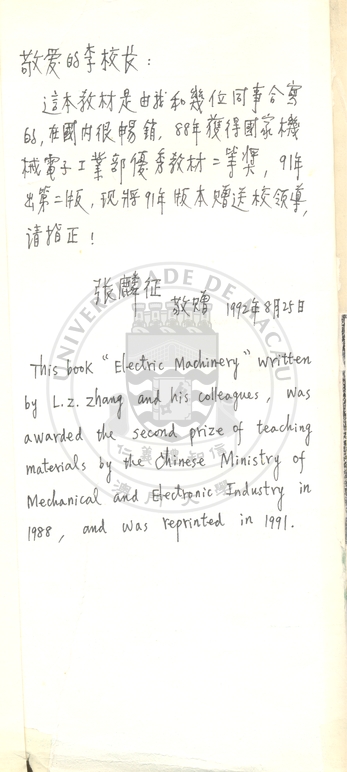 敬爱的李校长：
這本教材是由我和幾位同事合寫
的，在國内很暢銷，88年獲得國家機
械電子工業部優秀教材二等獎，91年
出第二版，现將91年版本赠送校领導，
请指正！
张麟征 敬赠 1992年8月25日
UNIVERSIDADE DE MACAU
This book "Electric Machinery" written
by L.Z. Zhang and his colleagues, was
awarded the second prize of teaching
materials by the Chinese Ministry of
仁義禮知信
Mechanical and Electronic Industry in
澳門大學
1988, and was reprinted in 1991.